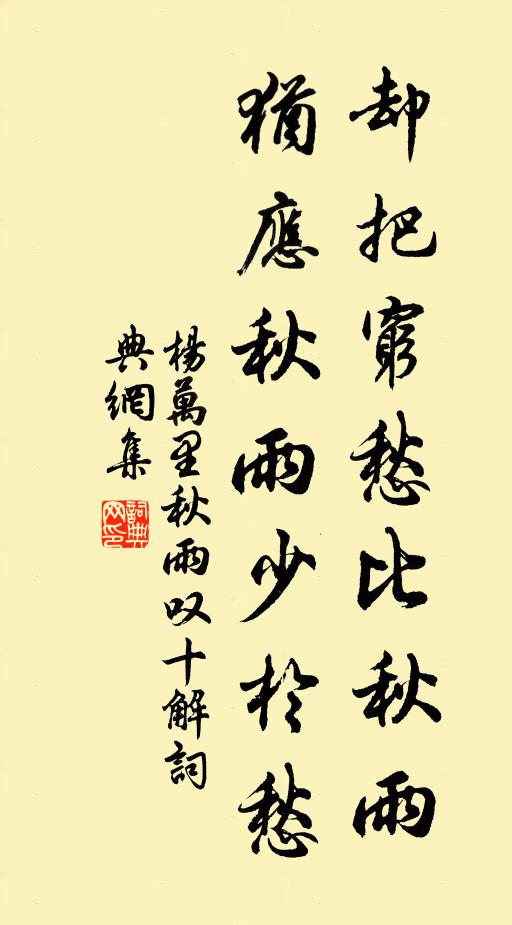 却把窮愁比秋雨
猶應秋雨少於愁
楊萬里秋雨叹十解詞
典網集
詞典
网印